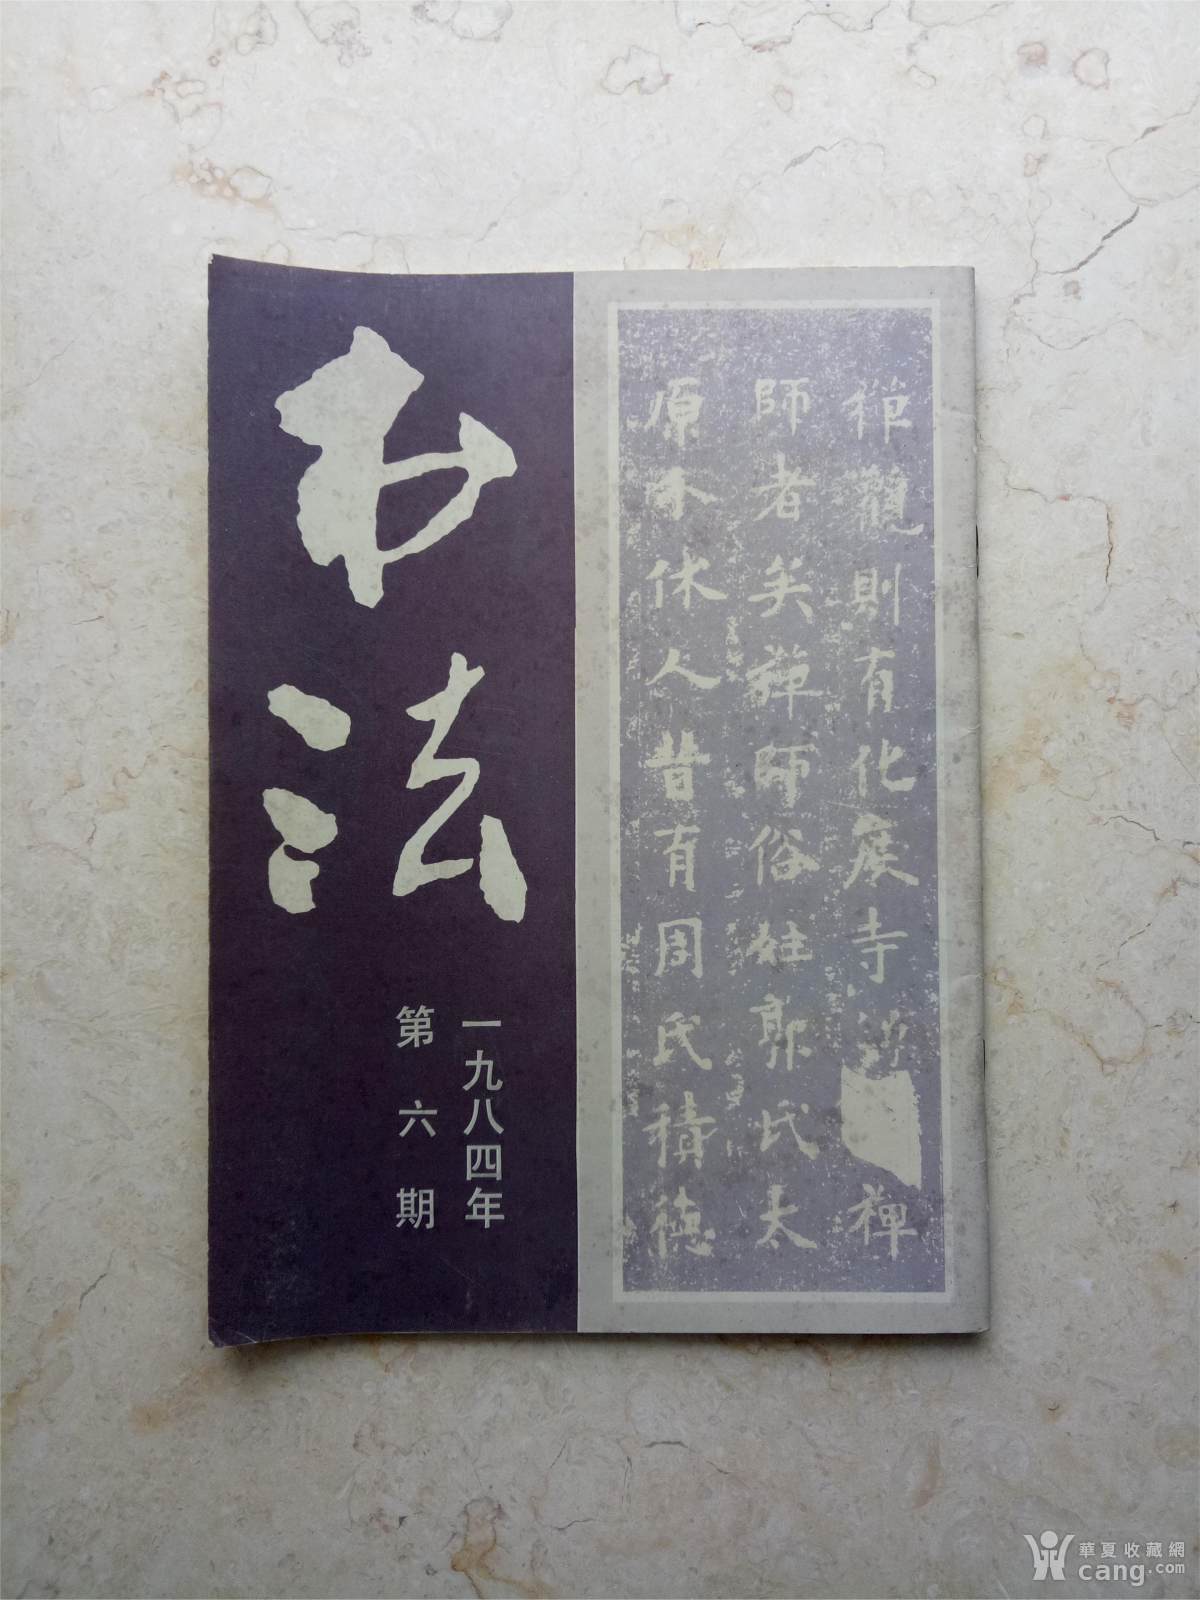 书法
一九八四年
第六期
禅觀則有化度寺僧禅
師者矣禅師俗姓郭氏太
原介休人昔有周氏積德
華夏收藏網
cang.com